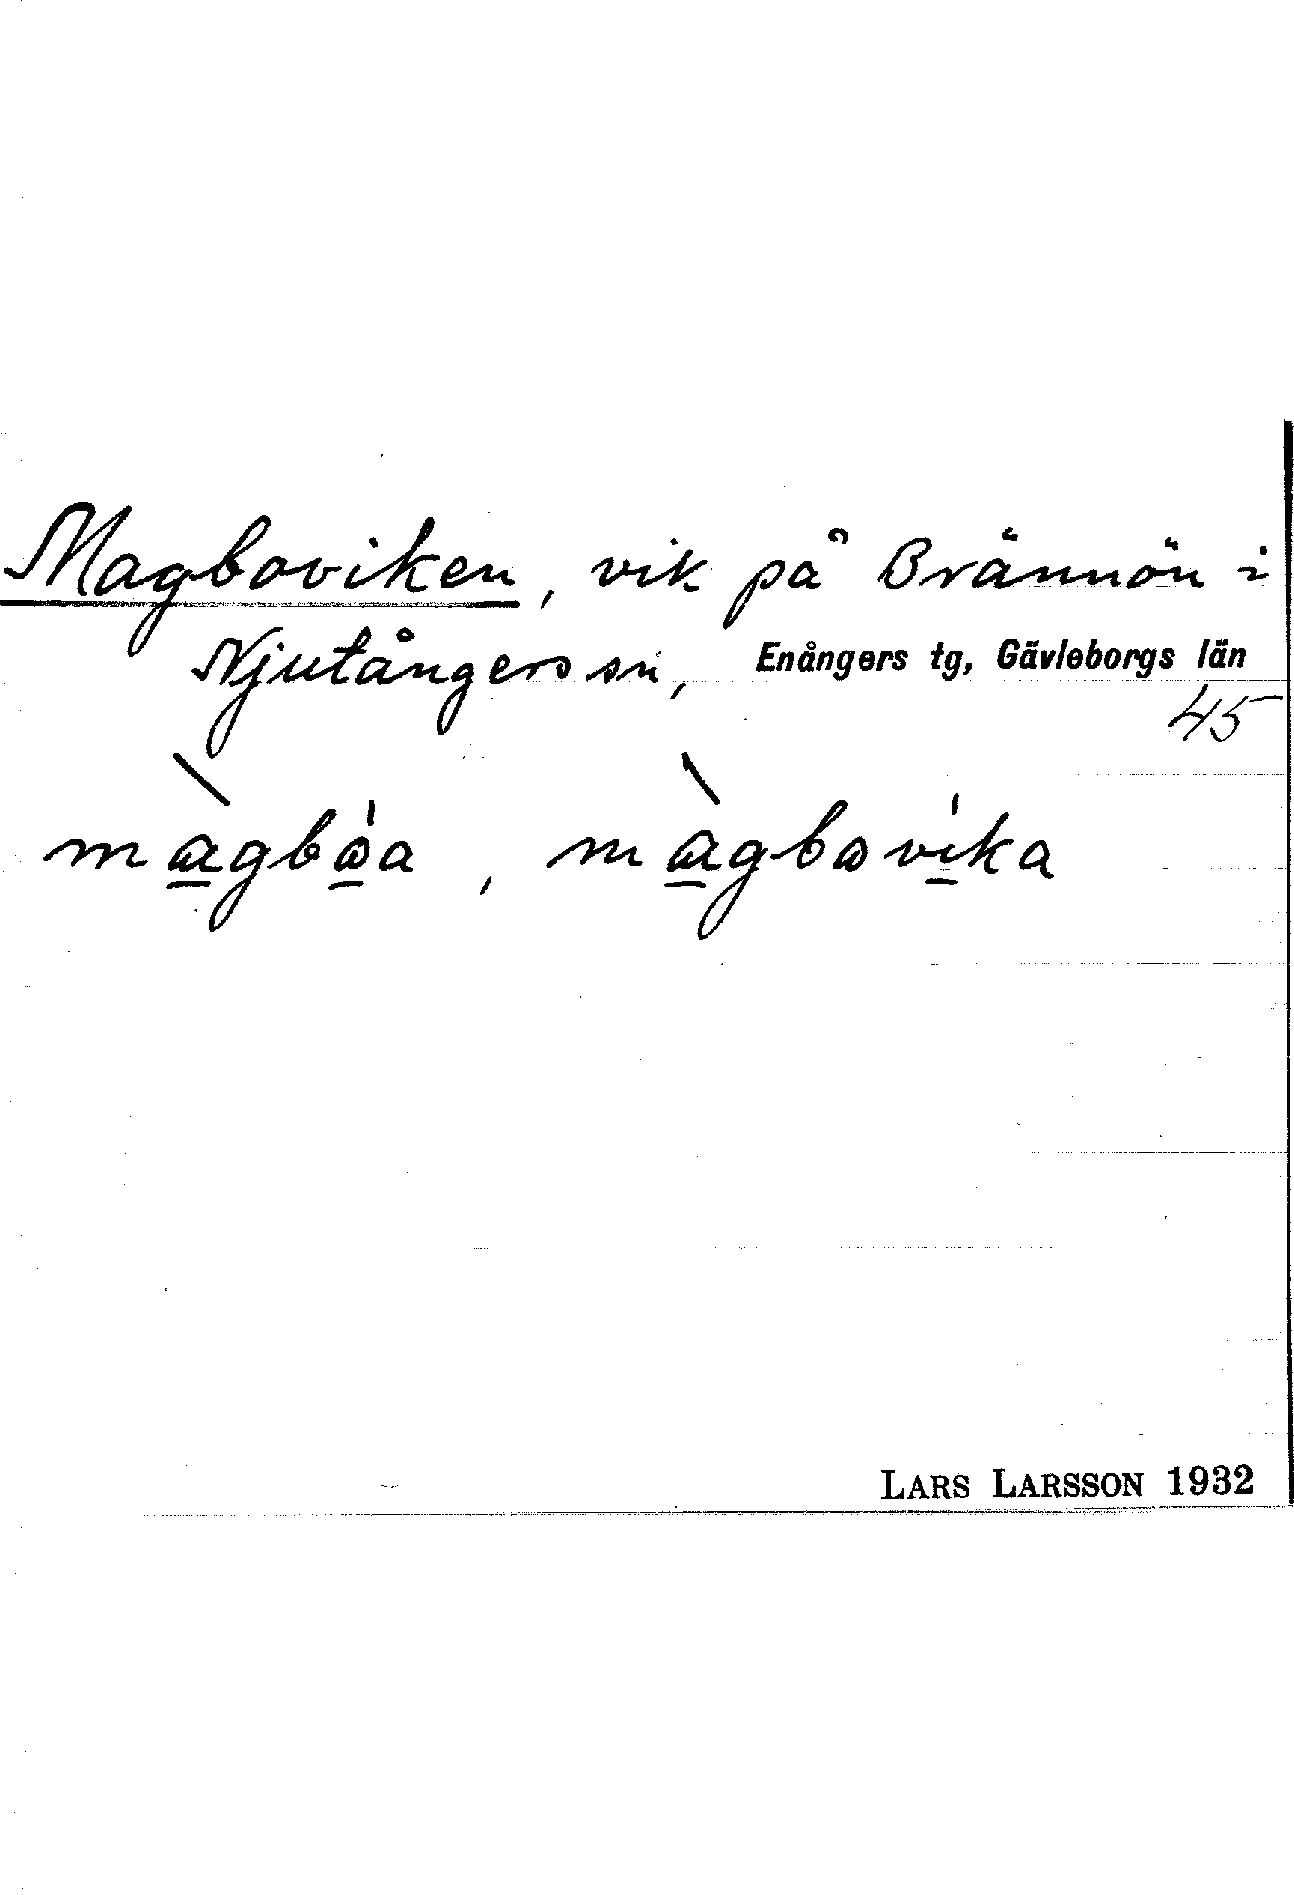 Magboviken, vik på Brännön i
Njutångers sn, Enångers tg, Gävleborgs län
45
màgbòa, màgbovika
LARS LARSSON 1932